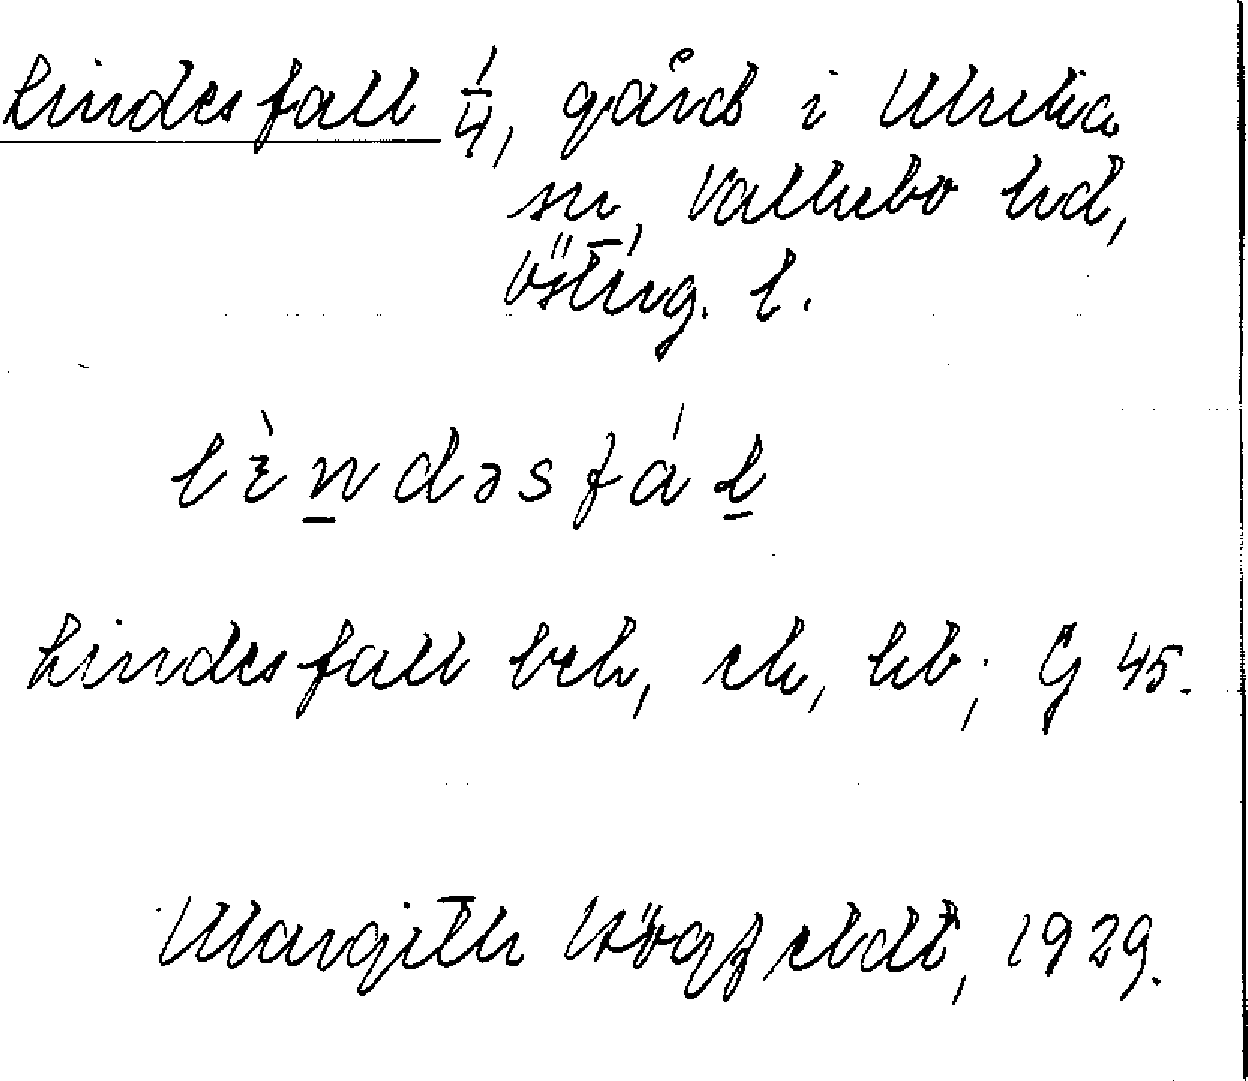 Lindesfall 1/4, gård i Ulrika
sn, Vallrebo hd,
Östrg. l.
lìndəsfál
Lindesfall bek, ek, kb; G 45.
Margith Högfeldt, 1929.